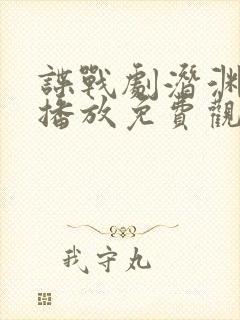 諜戰劇潛淵
播放免費觀
我守丸